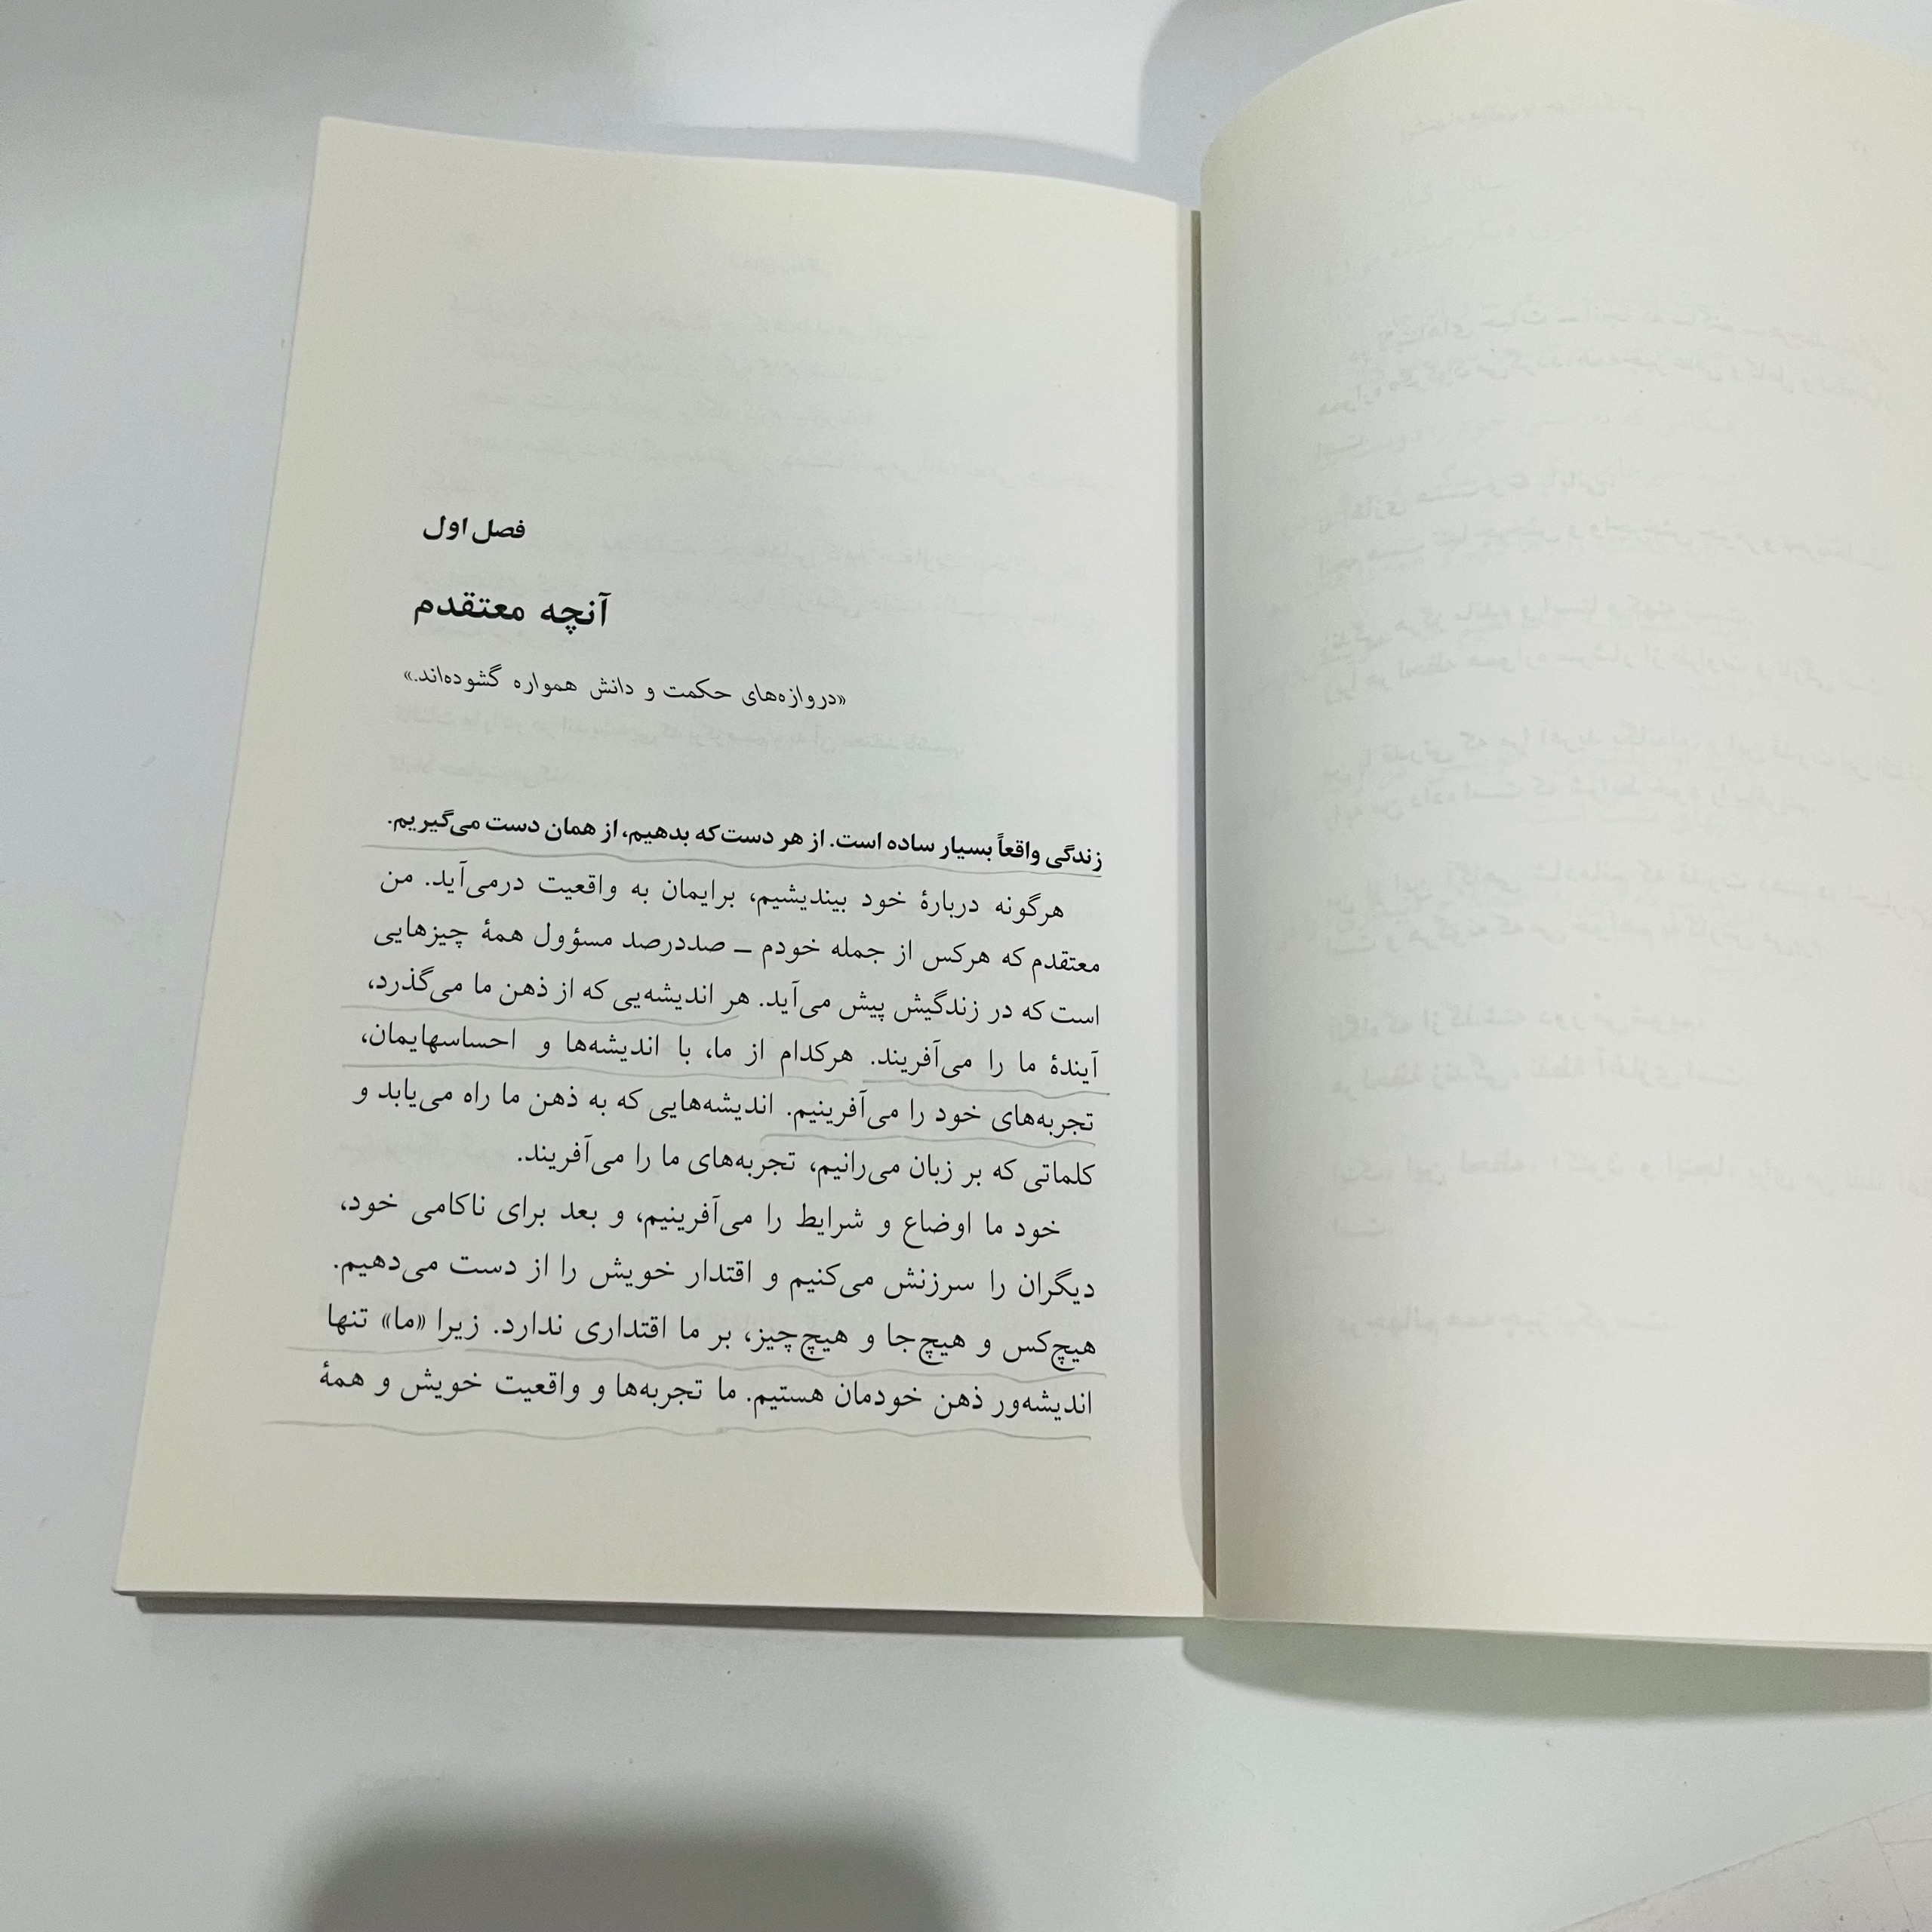 فصل اول
آنچه معتقدم
«دروازه‌های حکمت و دانش همواره گشوده‌اند.»
زندگی واقعاً بسیار ساده است. از هر دست که بدهیم، از همان دست می‌گیریم.
هرگونه دربارهٔ خود بیندیشیم، برایمان به واقعیت درمی‌آید. من
معتقدم که هرکس از جمله خودم ــ صددرصد مسؤول همهٔ چیزهایی
است که در زندگیش پیش می‌آید. هر اندیشه‌یی که از ذهن ما می‌گذرد،
آیندهٔ ما را می‌آفریند. هرکدام از ما، با اندیشه‌ها و احساسهایمان،
تجربه‌های خود را می‌آفرینیم. اندیشه‌هایی که به ذهن ما راه می‌یابد و
کلماتی که بر زبان می‌رانیم، تجربه‌های ما را می‌آفریند.
خود ما اوضاع و شرایط را می‌آفرینیم، و بعد برای ناکامی خود،
دیگران را سرزنش می‌کنیم و اقتدار خویش را از دست می‌دهیم.
هیچ‌کس و هیچ‌جا و هیچ‌چیز، بر ما اقتداری ندارد. زیرا «ما» تنها
اندیشه‌ور ذهن خودمان هستیم. ما تجربه‌ها و واقعیت خویش و همهٔ